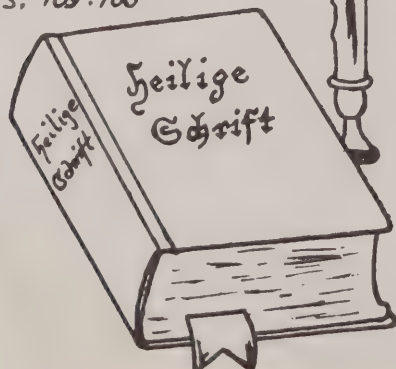 s. 109:100
Heilige
Schrift
Heilige
Schrift